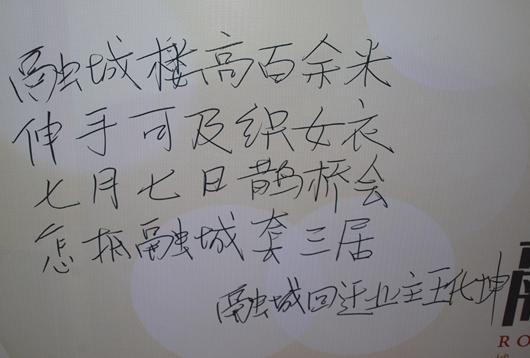 融城楼高百余米
伸手可及织女衣
七月七日鹊桥会
怎抵融城套三居
融城回迁业主王化坤
RO